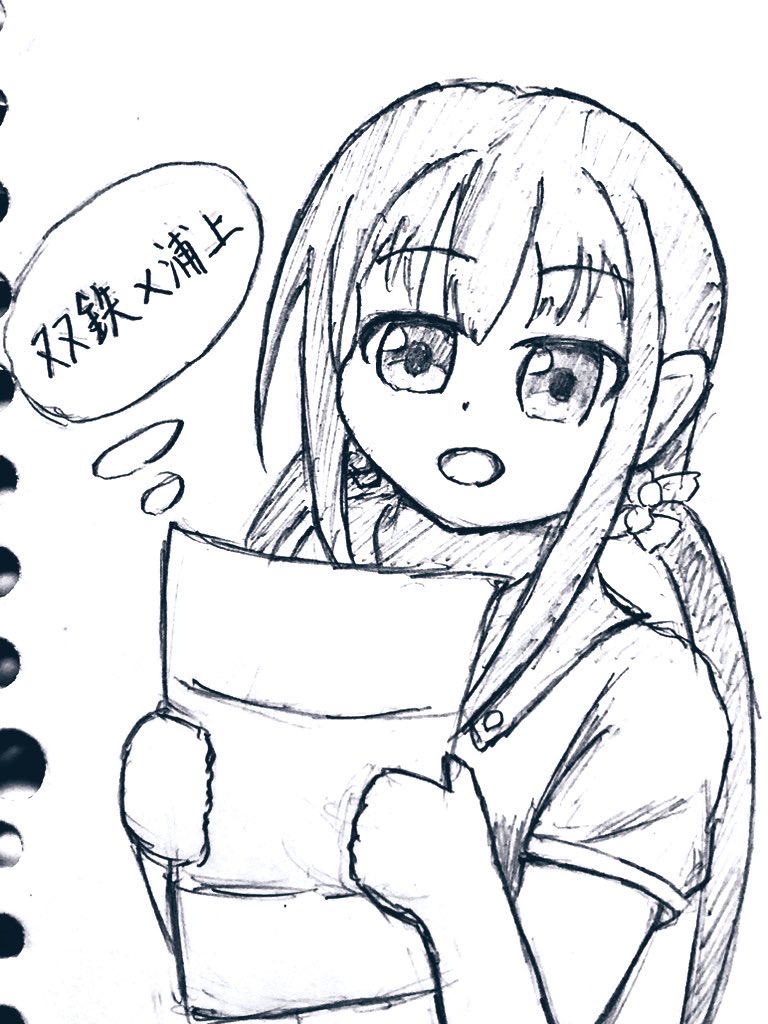 双鉄×浦上